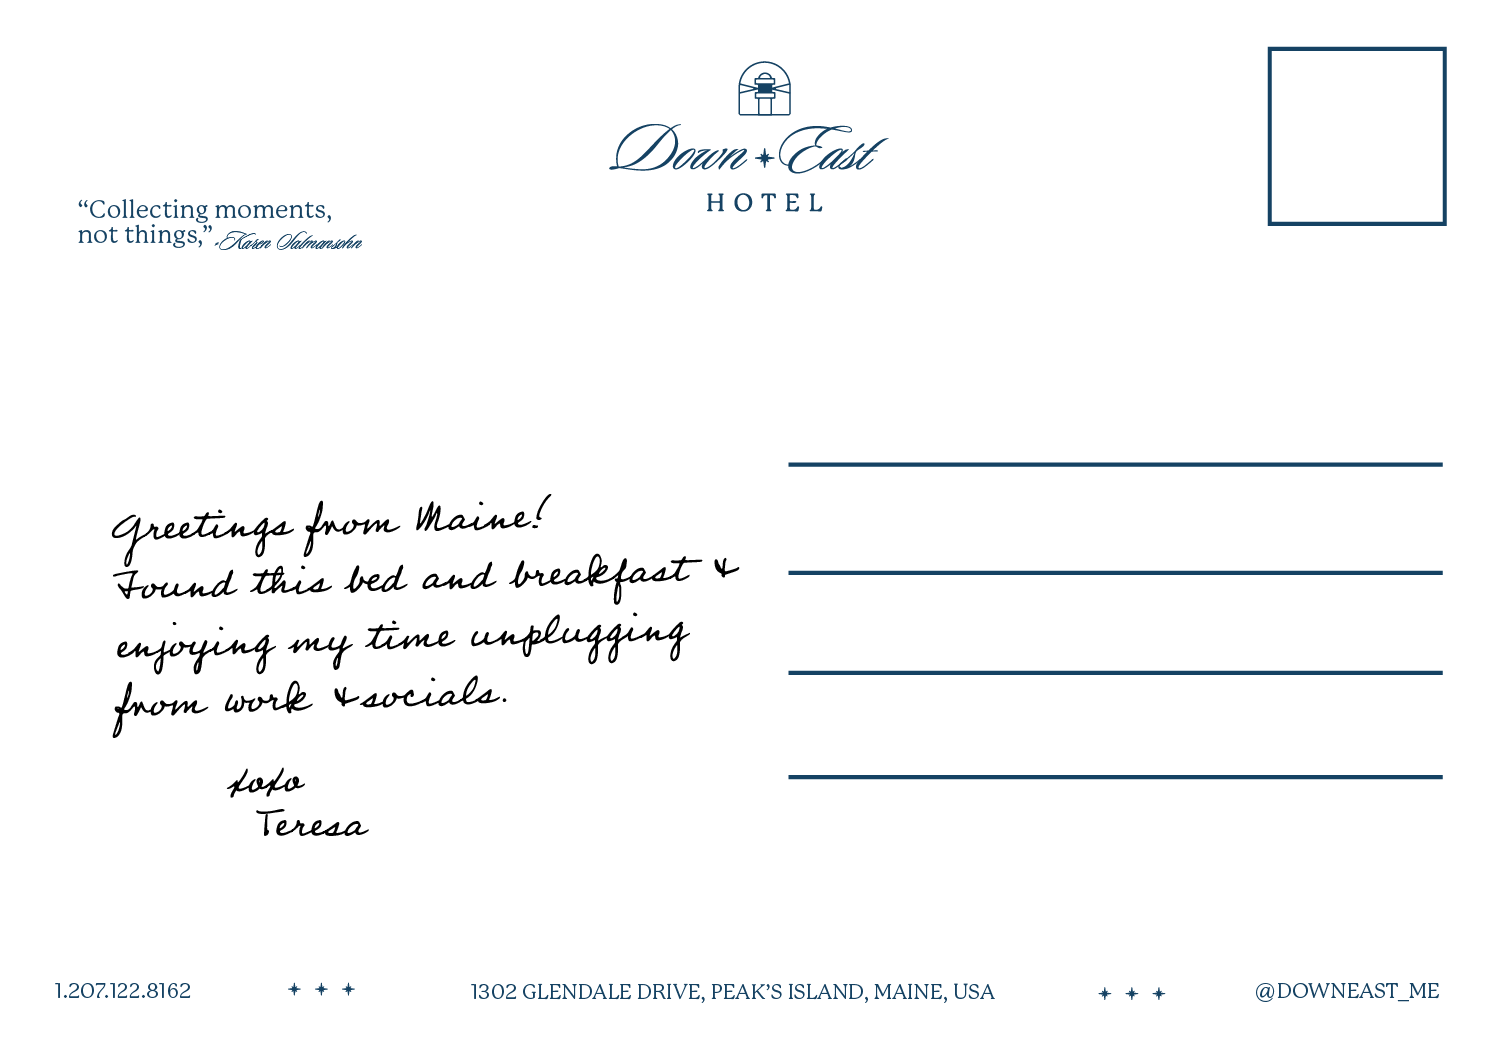 Down East
HOTEL
“Collecting moments,
not things,” -Karen Salmansohn
Greetings from Maine!
Found this bed and breakfast &
enjoying my time unplugging
from work & socials.
xoxo
Teresa
1.207.122.8162
1302 GLENDALE DRIVE, PEAK’S ISLAND, MAINE, USA
@DOWNEAST_ME